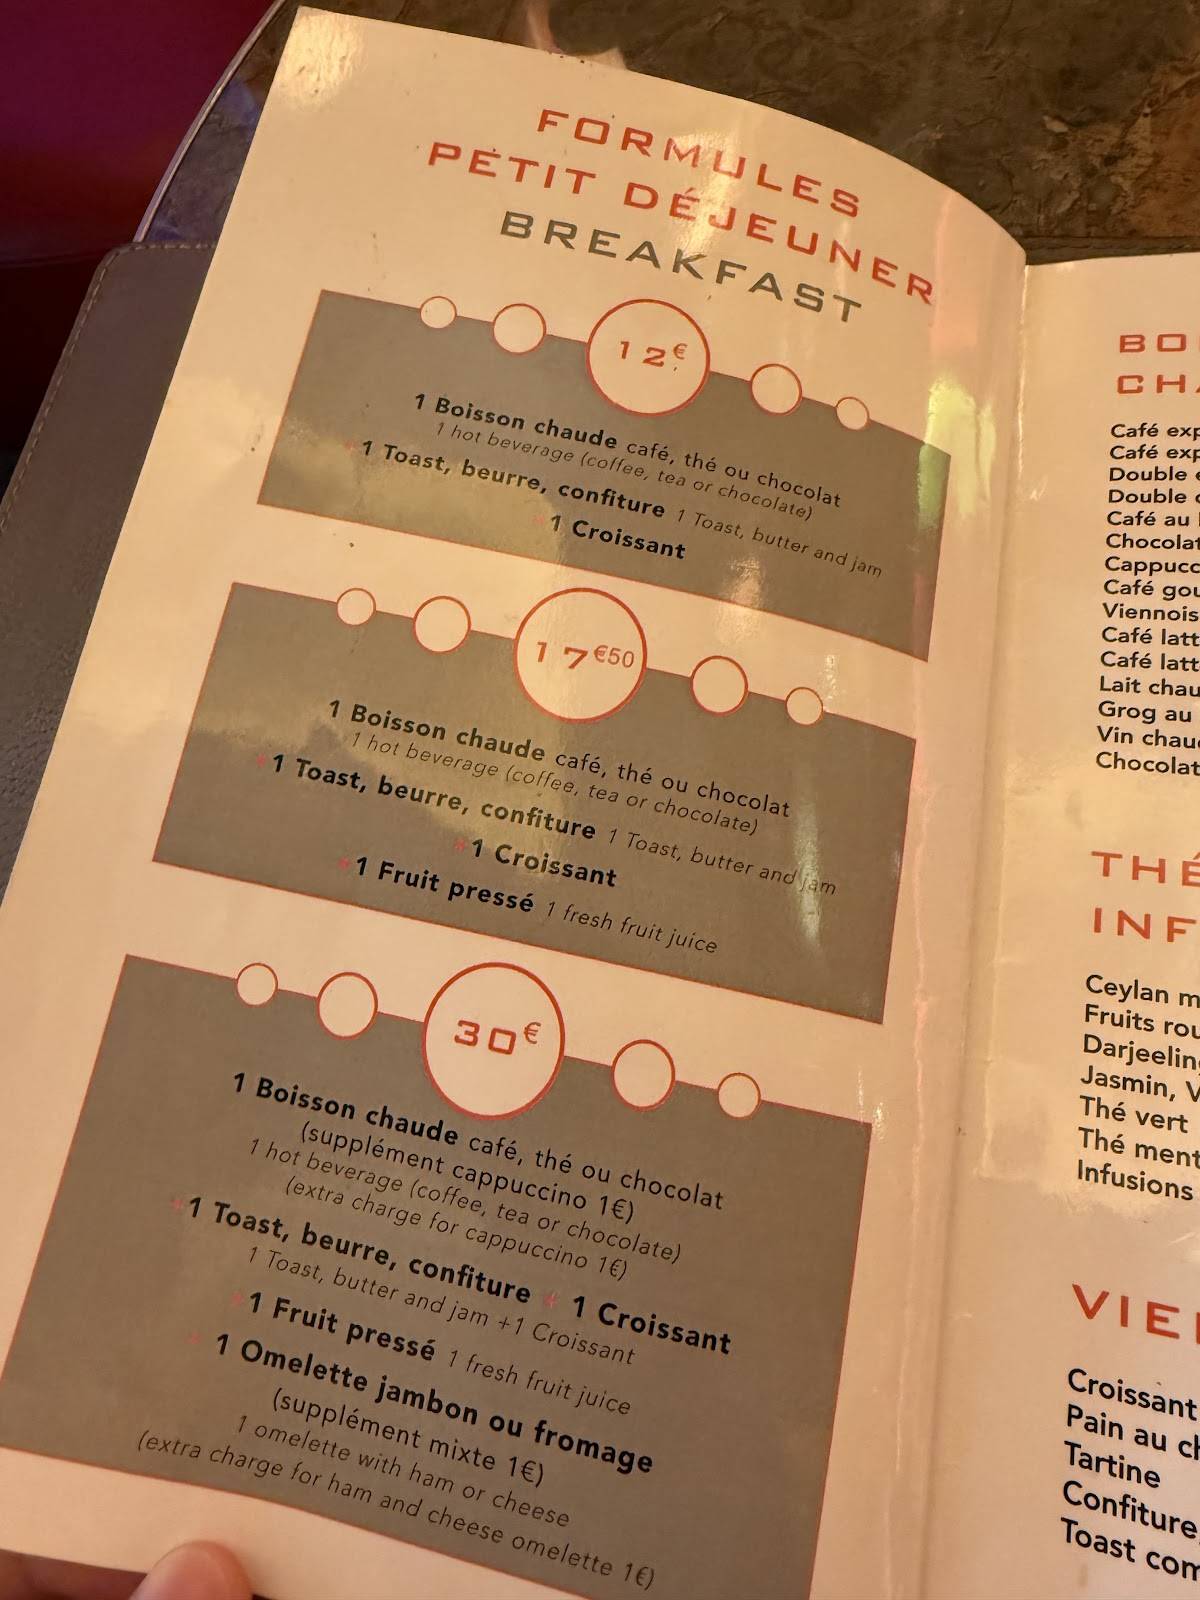 FORMULES
PETIT DÉJEUNER
BREAKFAST
12€
1 Boisson chaude café, thé ou chocolat
1 hot beverage (coffee, tea or chocolate)
+1 Toast, beurre, confiture 1 Toast, butter and jam
+1 Croissant
17€50
1 Boisson chaude café, thé ou chocolat
1 hot beverage (coffee, tea or chocolate)
+1 Toast, beurre, confiture 1 Toast, butter and jam
+1 Croissant
+1 Fruit pressé 1 fresh fruit juice
30€
1 Boisson chaude café, thé ou chocolat
(supplément cappuccino 1€)
1 hot beverage (coffee, tea or chocolate)
(extra charge for cappuccino 1€)
+1 Toast, beurre, confiture + 1 Croissant
1 Toast, butter and jam +1 Croissant
+1 Fruit pressé 1 fresh fruit juice
+ 1 Omelette jambon ou fromage
(supplément mixte 1€)
1 omelette with ham or cheese
(extra charge for ham and cheese omelette 1€)
Café
Café
Double
Double
Café au
Café
Café
Café
Lait
Grog au
Vin
THÉ
Ceylan
Fruits
Jasmin,
Thé vert
Thé
Infusions
Croissant
Pain au
Tartine
Confiture,
Toast